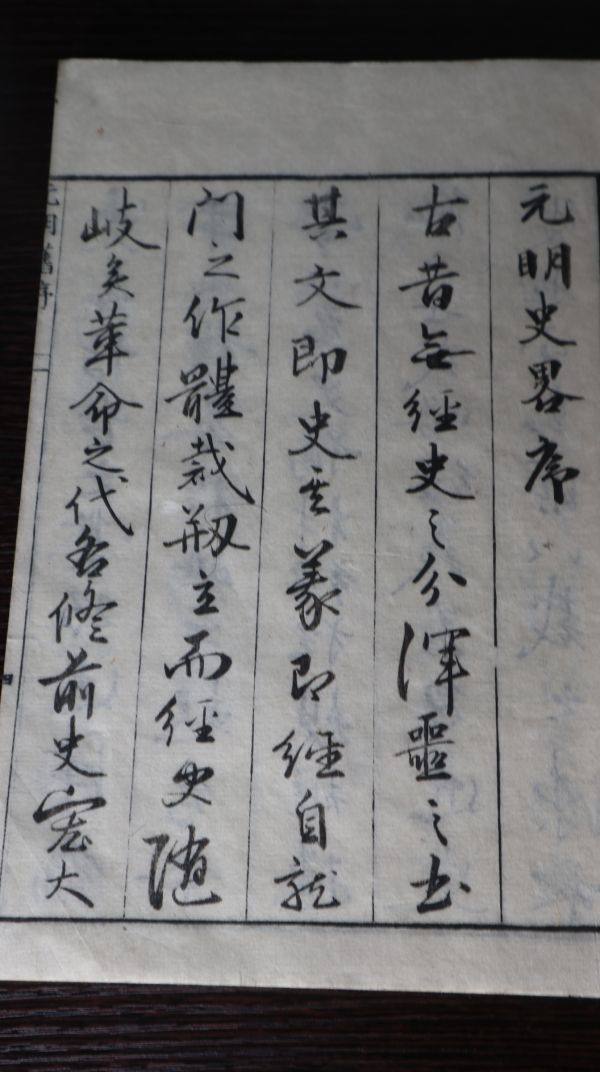 元明史畧序
古昔無經史之分渾噩之書
其文即史其義即經自龍
門之作體裁剏立而經史隨
岐矣革命之代各修前史宏大
元明舊序